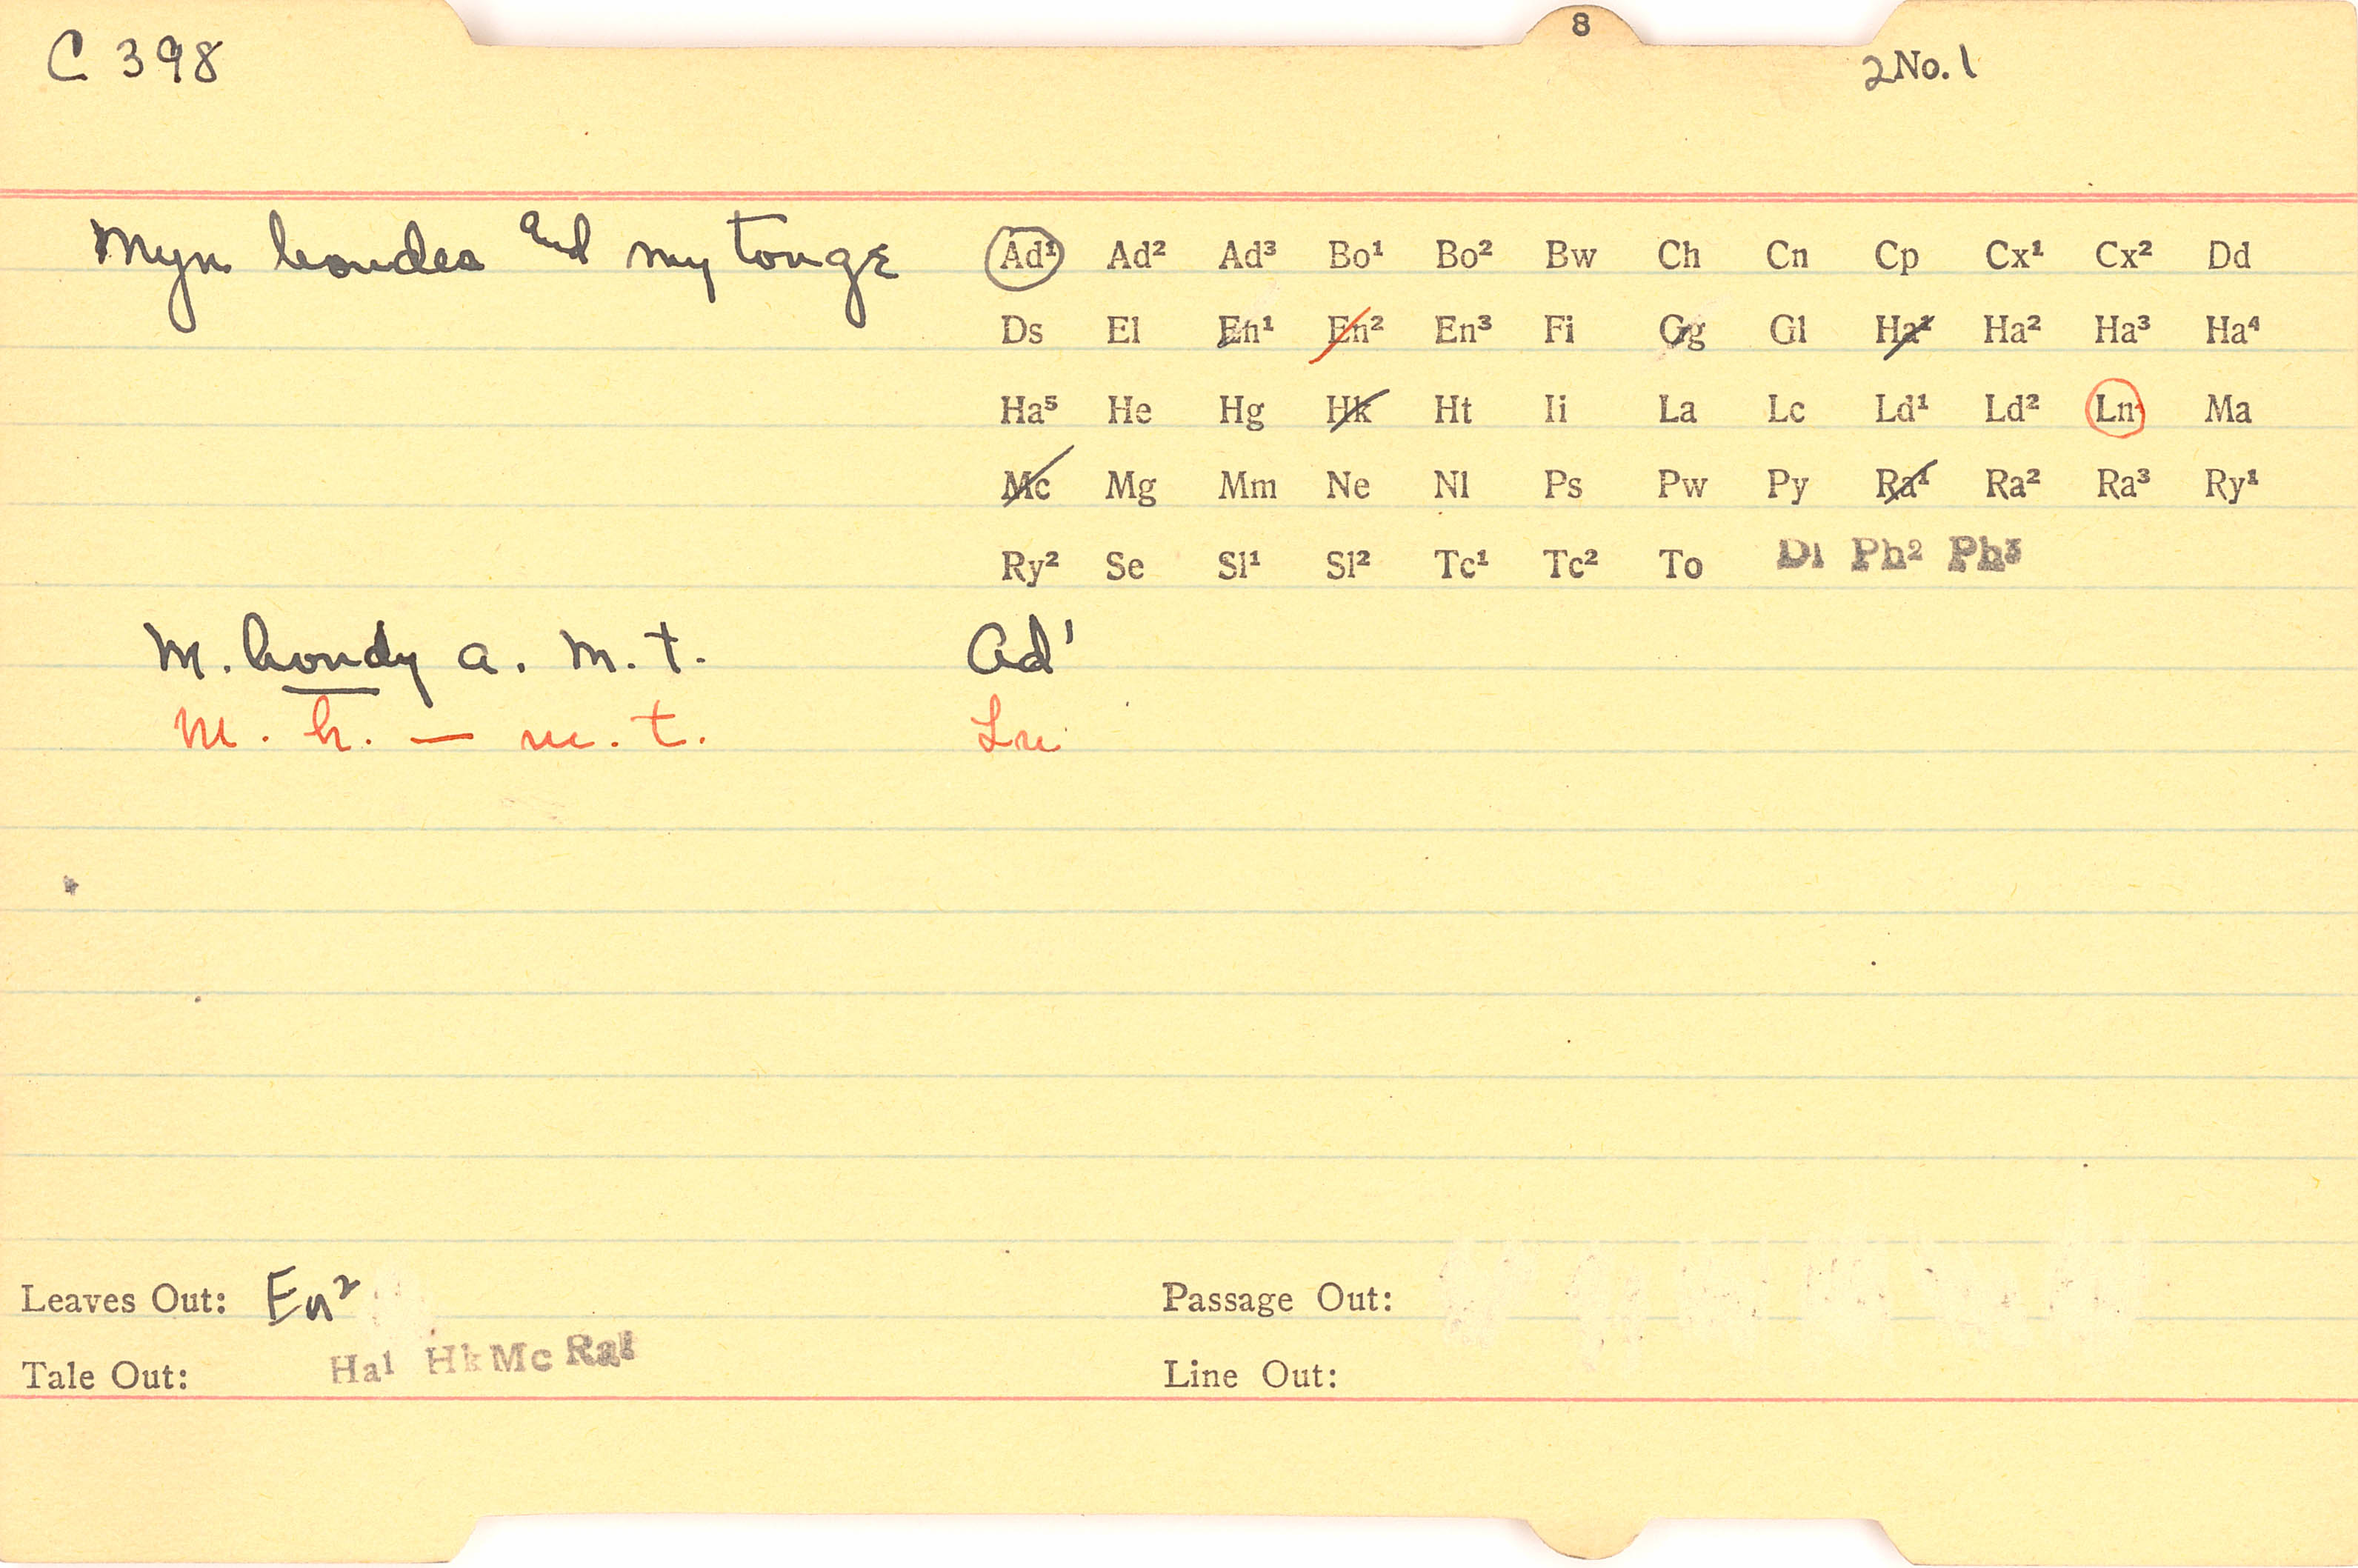 8
C 398
2 No. 1
Myn hondes and my tonge
Ad¹ Ad² Ad³ Bo¹ Bo² Bw Ch Cn Cp Cx¹ Cx² Dd
Ds El En¹ En² En³ Fi Gg Gl Ha¹ Ha² Ha³ Ha⁴
Ha⁵ He Hg Hk Ht Ii La Lc Ld¹ Ld² Ln Ma
Mc Mg Mm Ne Nl Ps Pw Py Ra¹ Ra² Ra³ Ry¹
Ry² Se Sl¹ Sl² Tc¹ Tc² To Dl Ph² Ph³
M. hondy a. m. t. Ad¹
M. h. — m. t. Ln
Leaves Out: En² Passage Out:
Tale Out: Ha¹ Hk Mc Ra¹ Line Out: